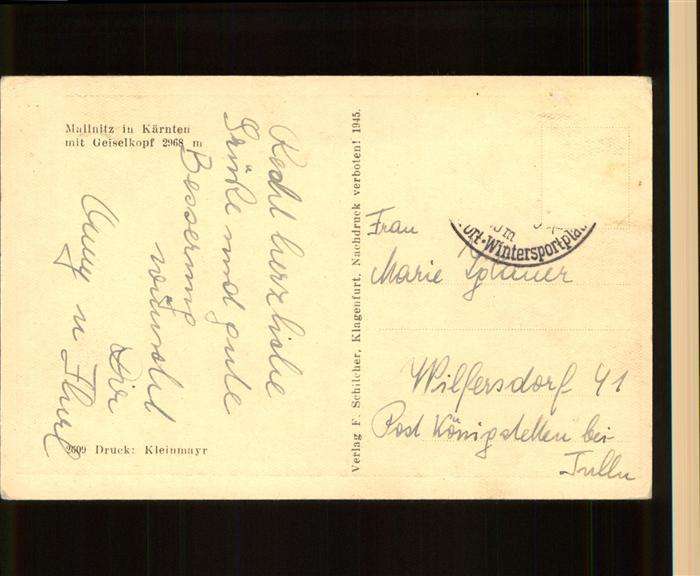 Mallnitz in Kärnten
mit Geiselkopf 2968 m
Recht herzliche
Grüße und gute
Besserung
wünscht
Dir
u
9609 Druck: Kleinmayr
Verlag F. Schilcher, Klagenfurt, Nachdruck verboten! 1945.
Wintersportplatz
Frau
Marie
Wilfersdorf 41
Post Königstetten bei
Tulln